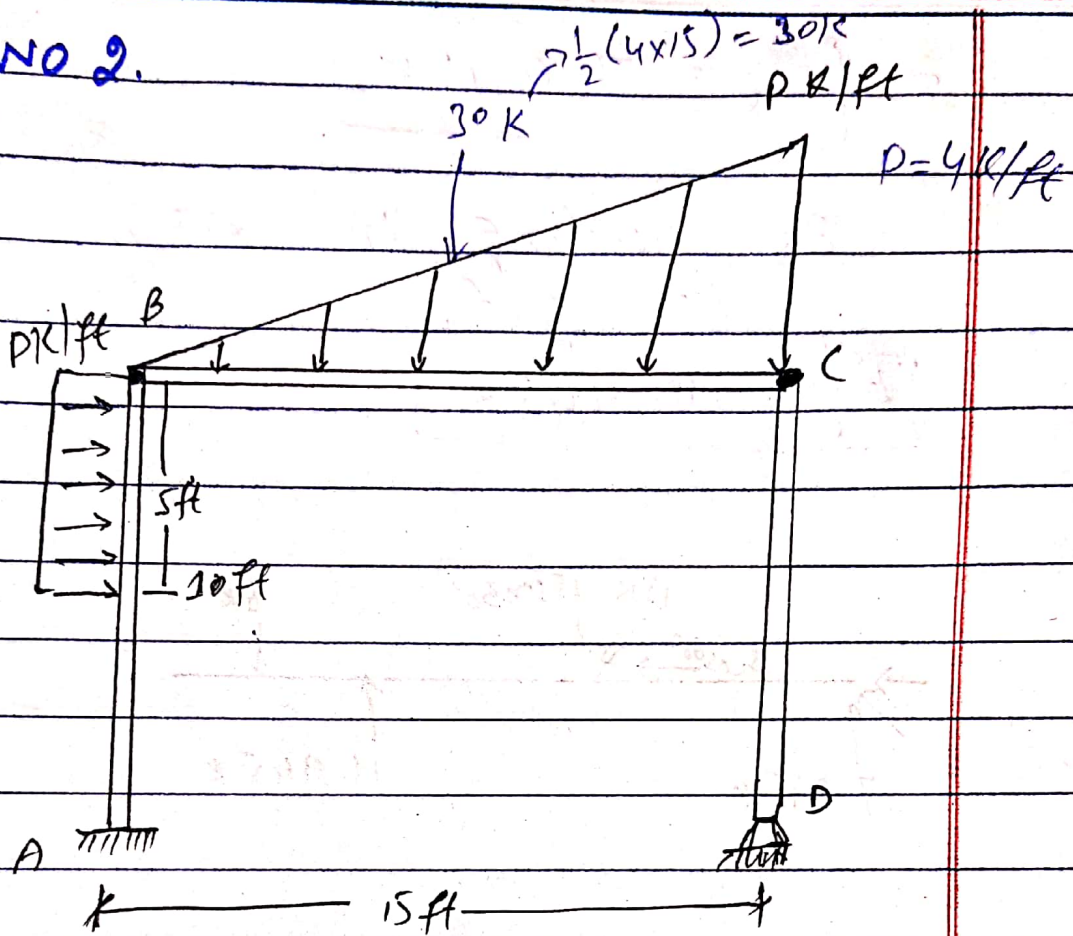 NO 2.
1/2 (4x15) = 30K
30 K
P K/ft
P=4K/ft
B
PK/ft
C
5ft
10ft
D
A
15 ft